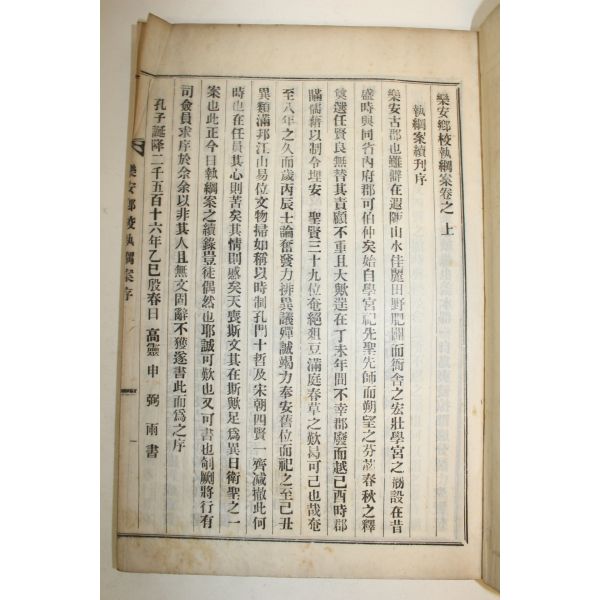 樂安鄕校執綱案卷之上
執綱案續刊序
樂安古郡也雖僻在遐陬山水佳麗田野肥闢而衙舍之宏壯學宮之剏設在昔
盛時與同省內府郡可伯仲矣始自學宮祀先聖先師而朔望之芬苾春秋之釋
奠選任賢良無替其責顧不重且大歟逮在丁未年間不幸郡廢而越己酉時郡
守瞞儒藉以制令埋安 聖賢三十九位奄絕俎豆滿庭春草之歎曷可已也哉奄
至八年之久而歲丙辰士論奮發力排異議殫誠竭力奉安舊位而祀之至己丑
異類滿邦江山易位文物掃如稱以時制孔門十哲及宋朝四賢一齊減撤此何
時也在任員其心則苦矣其情則慼矣天喪斯文其在斯歟足爲異日衛聖之一
案也此正今日執綱案之續錄豈徒偶然也耶誠可歎也又可書也剞劂將行有
司僉員求序於余余以非其人且無文固辭不獲遂書此而爲之序
孔子誕降二千五百十六年乙巳殷春日 高靈 申弼雨 書
樂安鄕校執綱案序
一